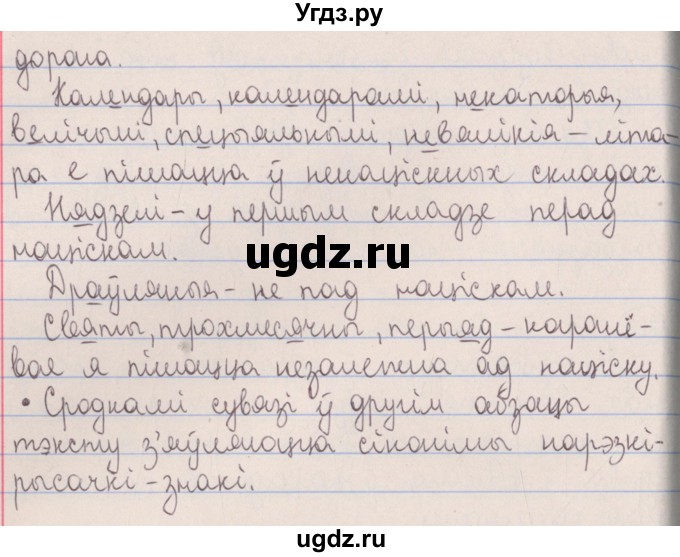 Угдз.ру
дорога.
Календары, календарамі, некаторыя,
велічымі, спецыяльнымі, невялікія – літа-
ра е пішацца ў ненаціскных складах.
Нядзелі – у першым складзе перад
націскам.
ugdz.ru
Драўляныя – не пад націскам.
Святы, трохмесячны, перыяд – карані-
вае я пішацца незалежна ад націску.
• Сродкамі сувязі ў другім абзацы
тэксту з'яўляюцца сінонімы нарэзкі-
рысачкі – знакі.
ugdz.ru